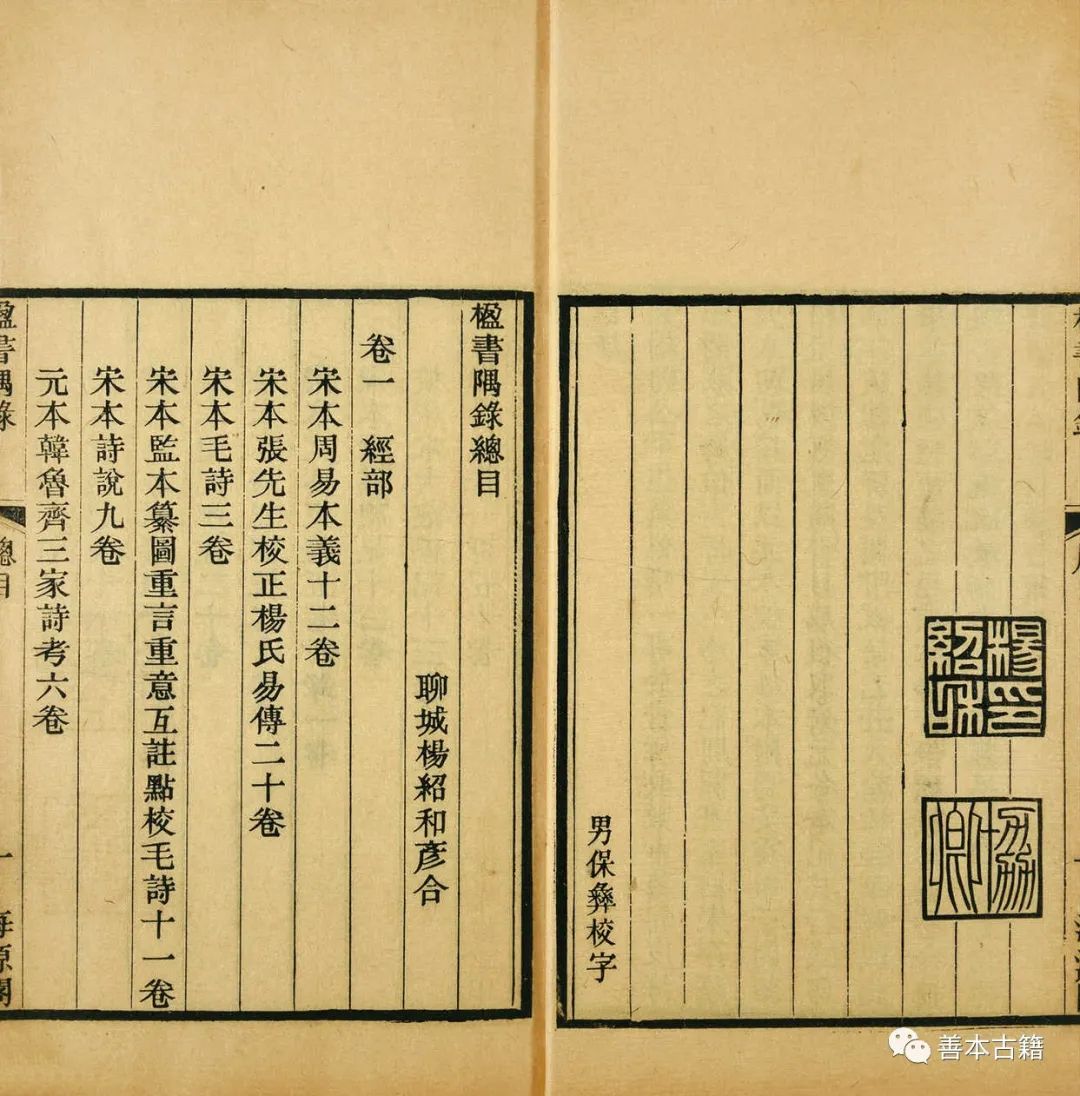 楊印紹和
協卿
男保彝校字
楹書隅錄總目
聊城楊紹和彥合
卷一 經部
宋本周易本義十二卷
宋本張先生校正楊氏易傳二十卷
宋本毛詩三卷
宋本監本纂圖重言重意互註點校毛詩十一卷
宋本詩說九卷
元本韓魯齊三家詩考六卷
楹書隅錄 總目 一 海源閣
善本古籍